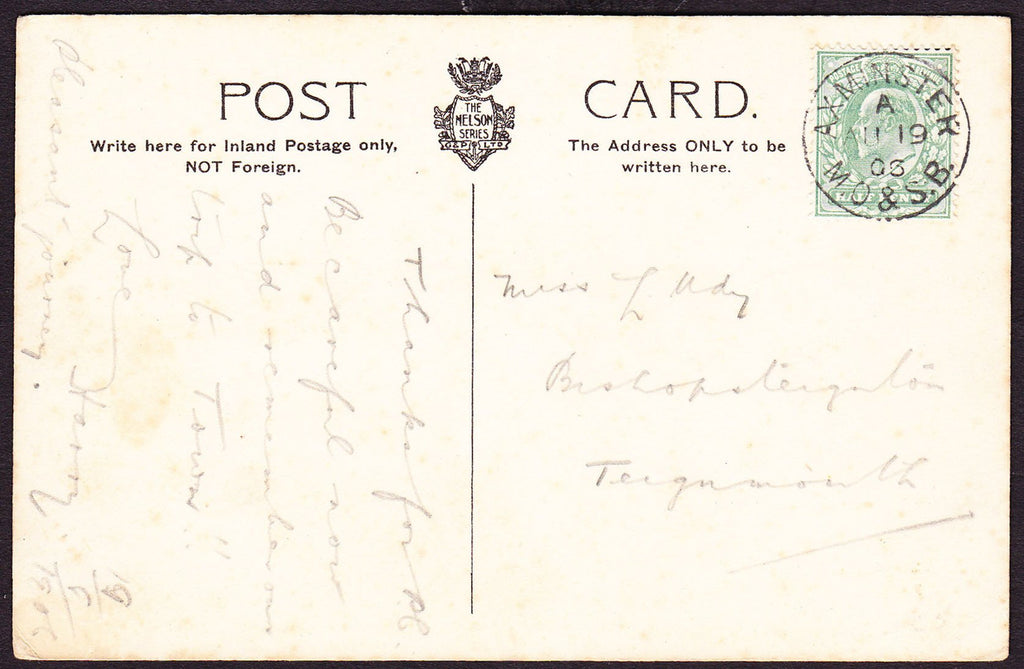 POST CARD.
THE
NELSON
SERIES
G&P LTD
Write here for Inland Postage only,
NOT Foreign.
The Address ONLY to be
written here.
AXMINSTER
A
AU 19
03
M.O & S.B.
Miss L Udy
Bishopsteignton
Teignmouth
Thanks for PC
Be careful now
and remember our
trip to Town!!
Love
Harry.
Pleasant journey.